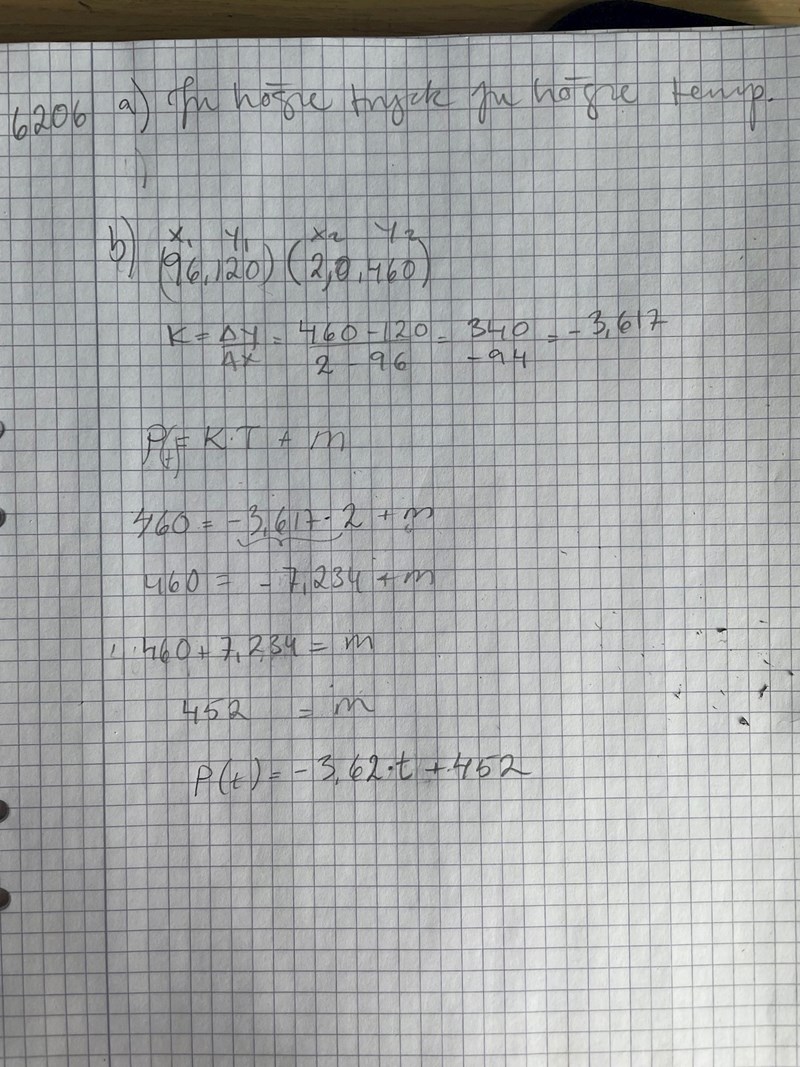 6206 a) Ju högre tryck Ju högre temp.
b) x₁ y₁ x₂ y₂
(96,120) (2,0,460)
K = ΔY/ΔX = 460-120/2-96 = 340/-94 = -3,617
P(t)= K·T + m
460 = -3,617·2 + m
460 = -7,234 + m
460+7,234 = m
452 = m
P(t) = -3,62·t + 452